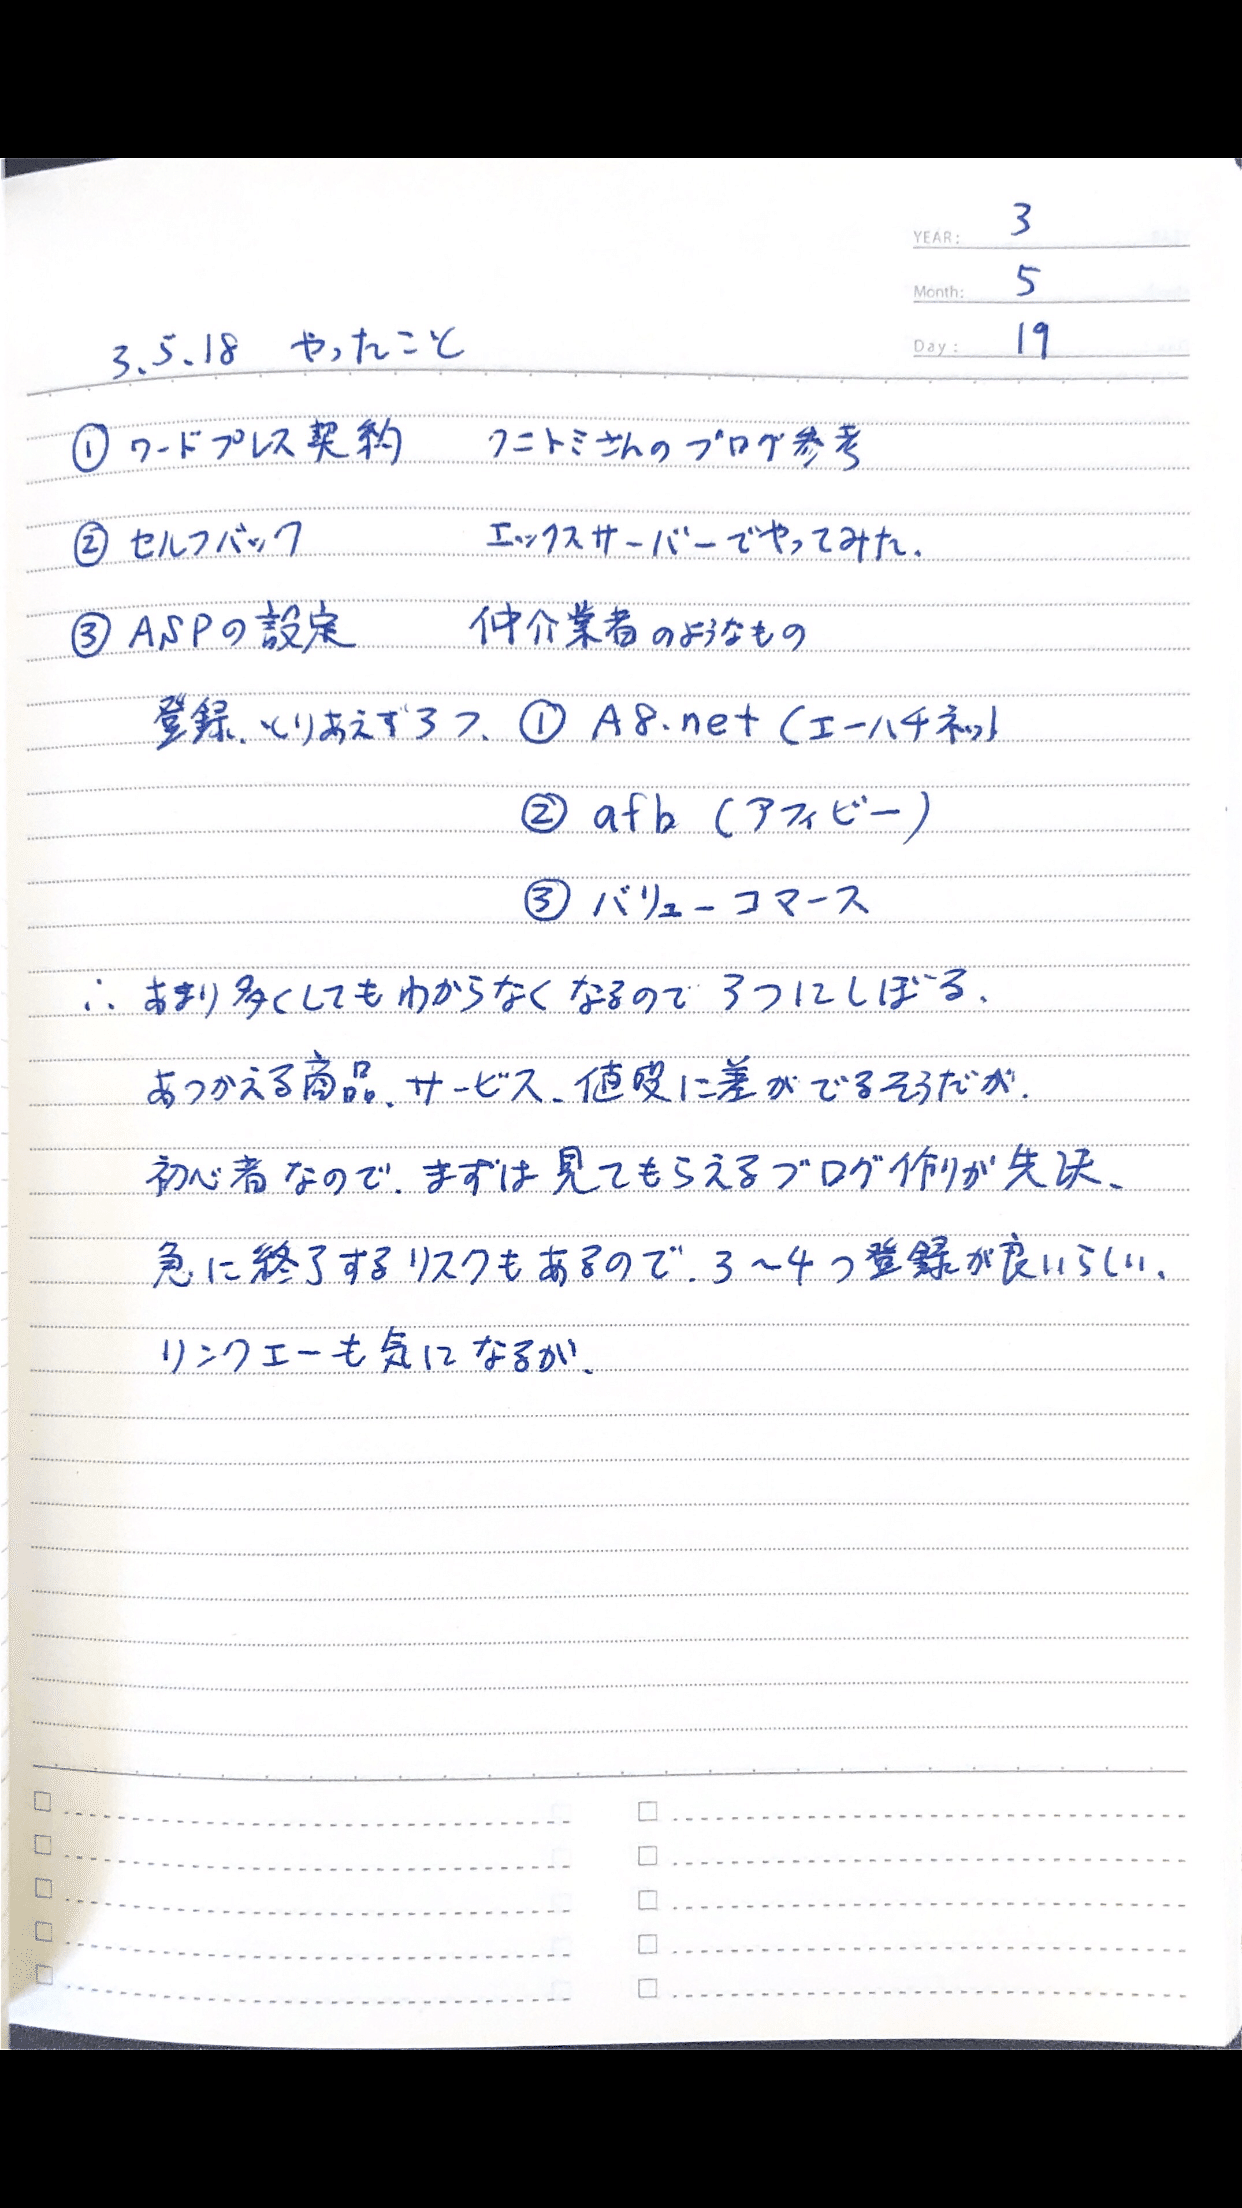 YEAR: 3
Month: 5
Day: 19
3.5.18 やったこと
① ワードプレス契約 クニトミさんのブログ参考
② セルフバック エックスサーバーでやってみた.
③ ASPの設定 仲介業者のようなもの
登録、とりあえず3つ、 ① A8.net (エーハチネット
② afb (アフィビー)
③ バリューコマース
∴ あまり多くしてもわからなくなるので 3つにしぼる.
あつかえる商品、サービス、値段に差がでるそうだが.
初心者なので、まずは見てもらえるブログ作りが先決、
急に終了するリスクもあるので、3〜4つ登録が良いらしい、
リンクエーも気になるが、